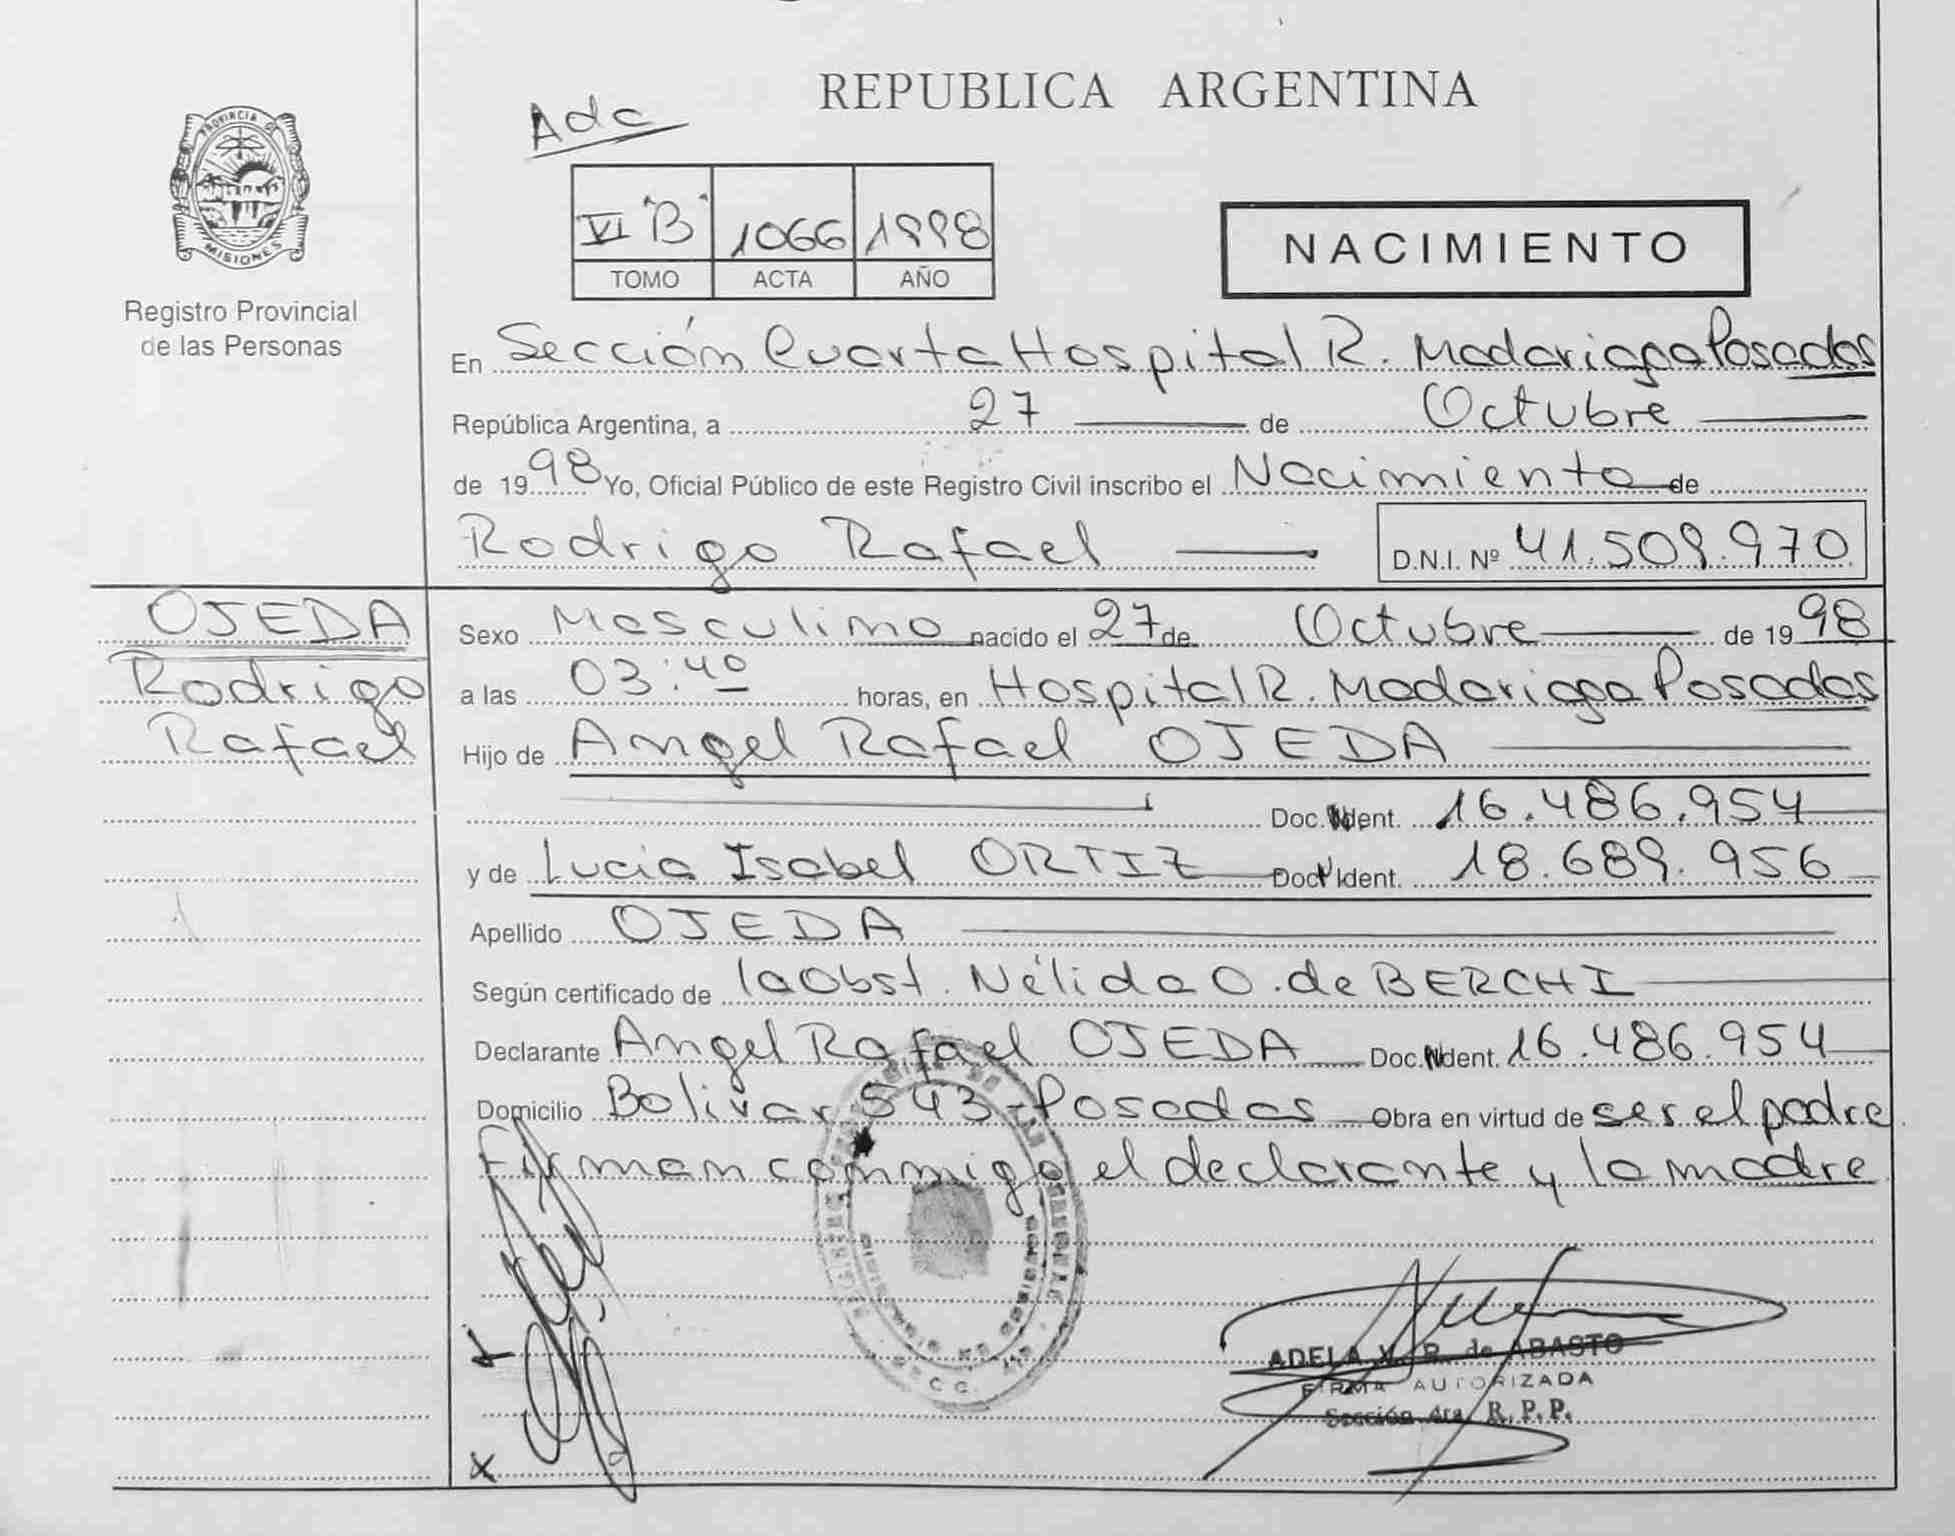 REPUBLICA ARGENTINA
Adc
PROVINCIA DE
MISIONES
Registro Provincial
de las Personas
VI "B" 1066 1998
TOMO ACTA AÑO
NACIMIENTO
En Sección Cuarta Hospital R. Madariaga Posadas
República Argentina, a 27 de Octubre
de 1998 Yo, Oficial Público de este Registro Civil inscribo el Nacimiento de
Rodrigo Rafael D.N.I. Nº 41.509.970
OJEDA
Rodrigo
Rafael
Sexo Masculino nacido el 27 de Octubre de 1998
a las 03:40 horas, en Hospital R. Madariaga Posadas
Hijo de Angel Rafael OJEDA
Doc. Ident. 16.486.954
y de Lucia Isabel ORTIZ Doc. Ident. 18.689.956
Apellido OJEDA
Según certificado de la Obst. Nélida O. de BERCHI
Declarante Angel Rafael OJEDA Doc. Ident. 16.486.954
Domicilio Bolivar 543 - Posadas Obra en virtud de ser el padre
Firman conmigo el declarante y la madre
ADELA V. R. de ABASTO
FIRMA AUTORIZADA
Sección 4ta R.P.P.